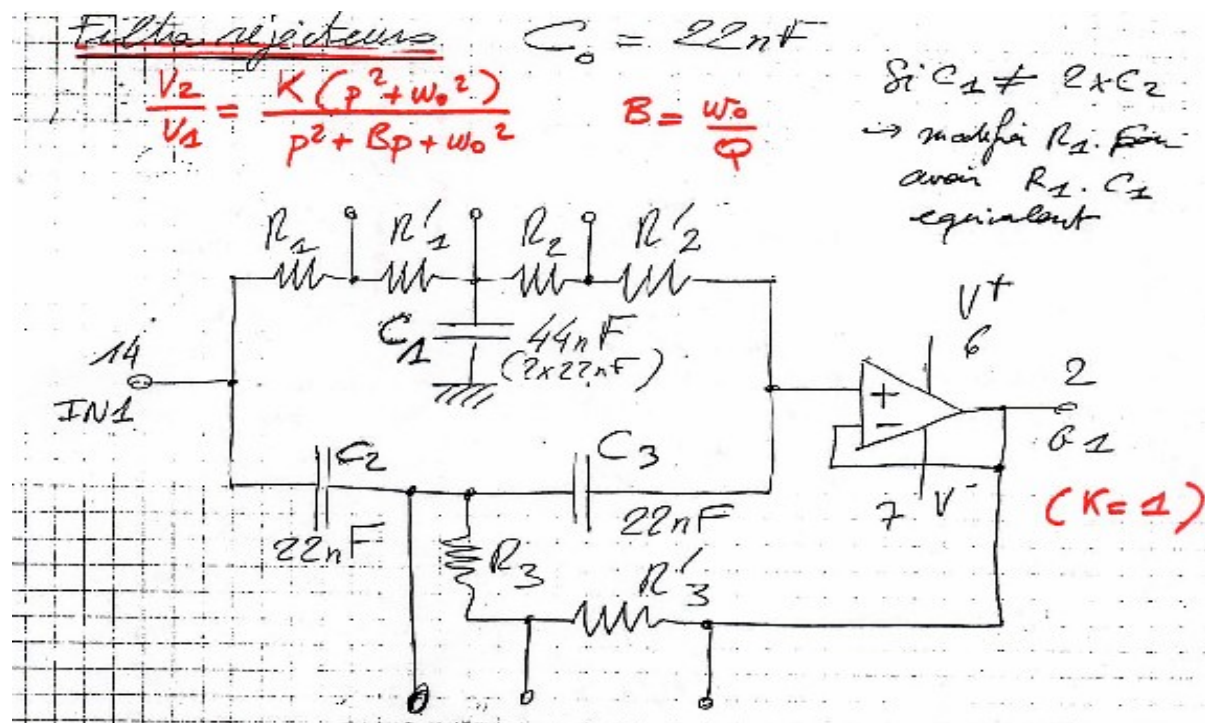 Filtre réjecteurs C₀ = 22nF
V₂/V₁ = K(p² + ω₀²) / p² + Bp + ω₀²
B = ω₀/Q
Si C₁ ≠ 2xC₂
→ modifier R₁
avoir R₁.C₁
equivalent
R₁ R'₁ R₂ R'₂
C₁ 44nF
(2x22nF)
14
IN1
V⁺
6
+
−
2
O1
7 V⁻
(K=1)
C₂
22nF
C₃
22nF
R₃
R'₃